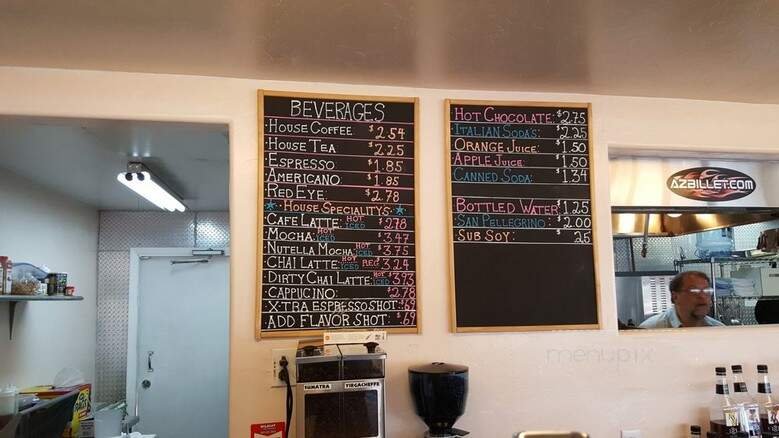 BEVERAGES
·HOUSE COFFEE $2.54
·HOUSE TEA $2.25
·ESPRESSO $1.85
·AMERICANO $1.85
·RED EYE: $2.78
·HOUSE SPECIALITYS·
·CAFE LATTE: HOT ICED $2.78
·MOCHA: HOT ICED $3.47
·NUTELLA MOCHA: HOT ICED $3.75
·CHAI LATTE: HOT ICED REG $3.24
·DIRTY CHAI LATTE: HOT ICED $3.93
·CAPPUCINO: $2.78
·X-TRA ESPRESSO SHOT: .69
·ADD FLAVOR SHOT: $.69
·HOT CHOCOLATE: $2.75
·ITALIAN SODA'S: $2.25
ORANGE JUICE: $1.50
·APPLE JUICE: $1.50
·CANNED SODA: $1.34
·BOTTLED WATER $1.25
·SAN PELLEGRINO: $2.00
·SUB SOY: $.25
AZBILLET.COM
menupix
SUMATRA YIRGACHEFFE